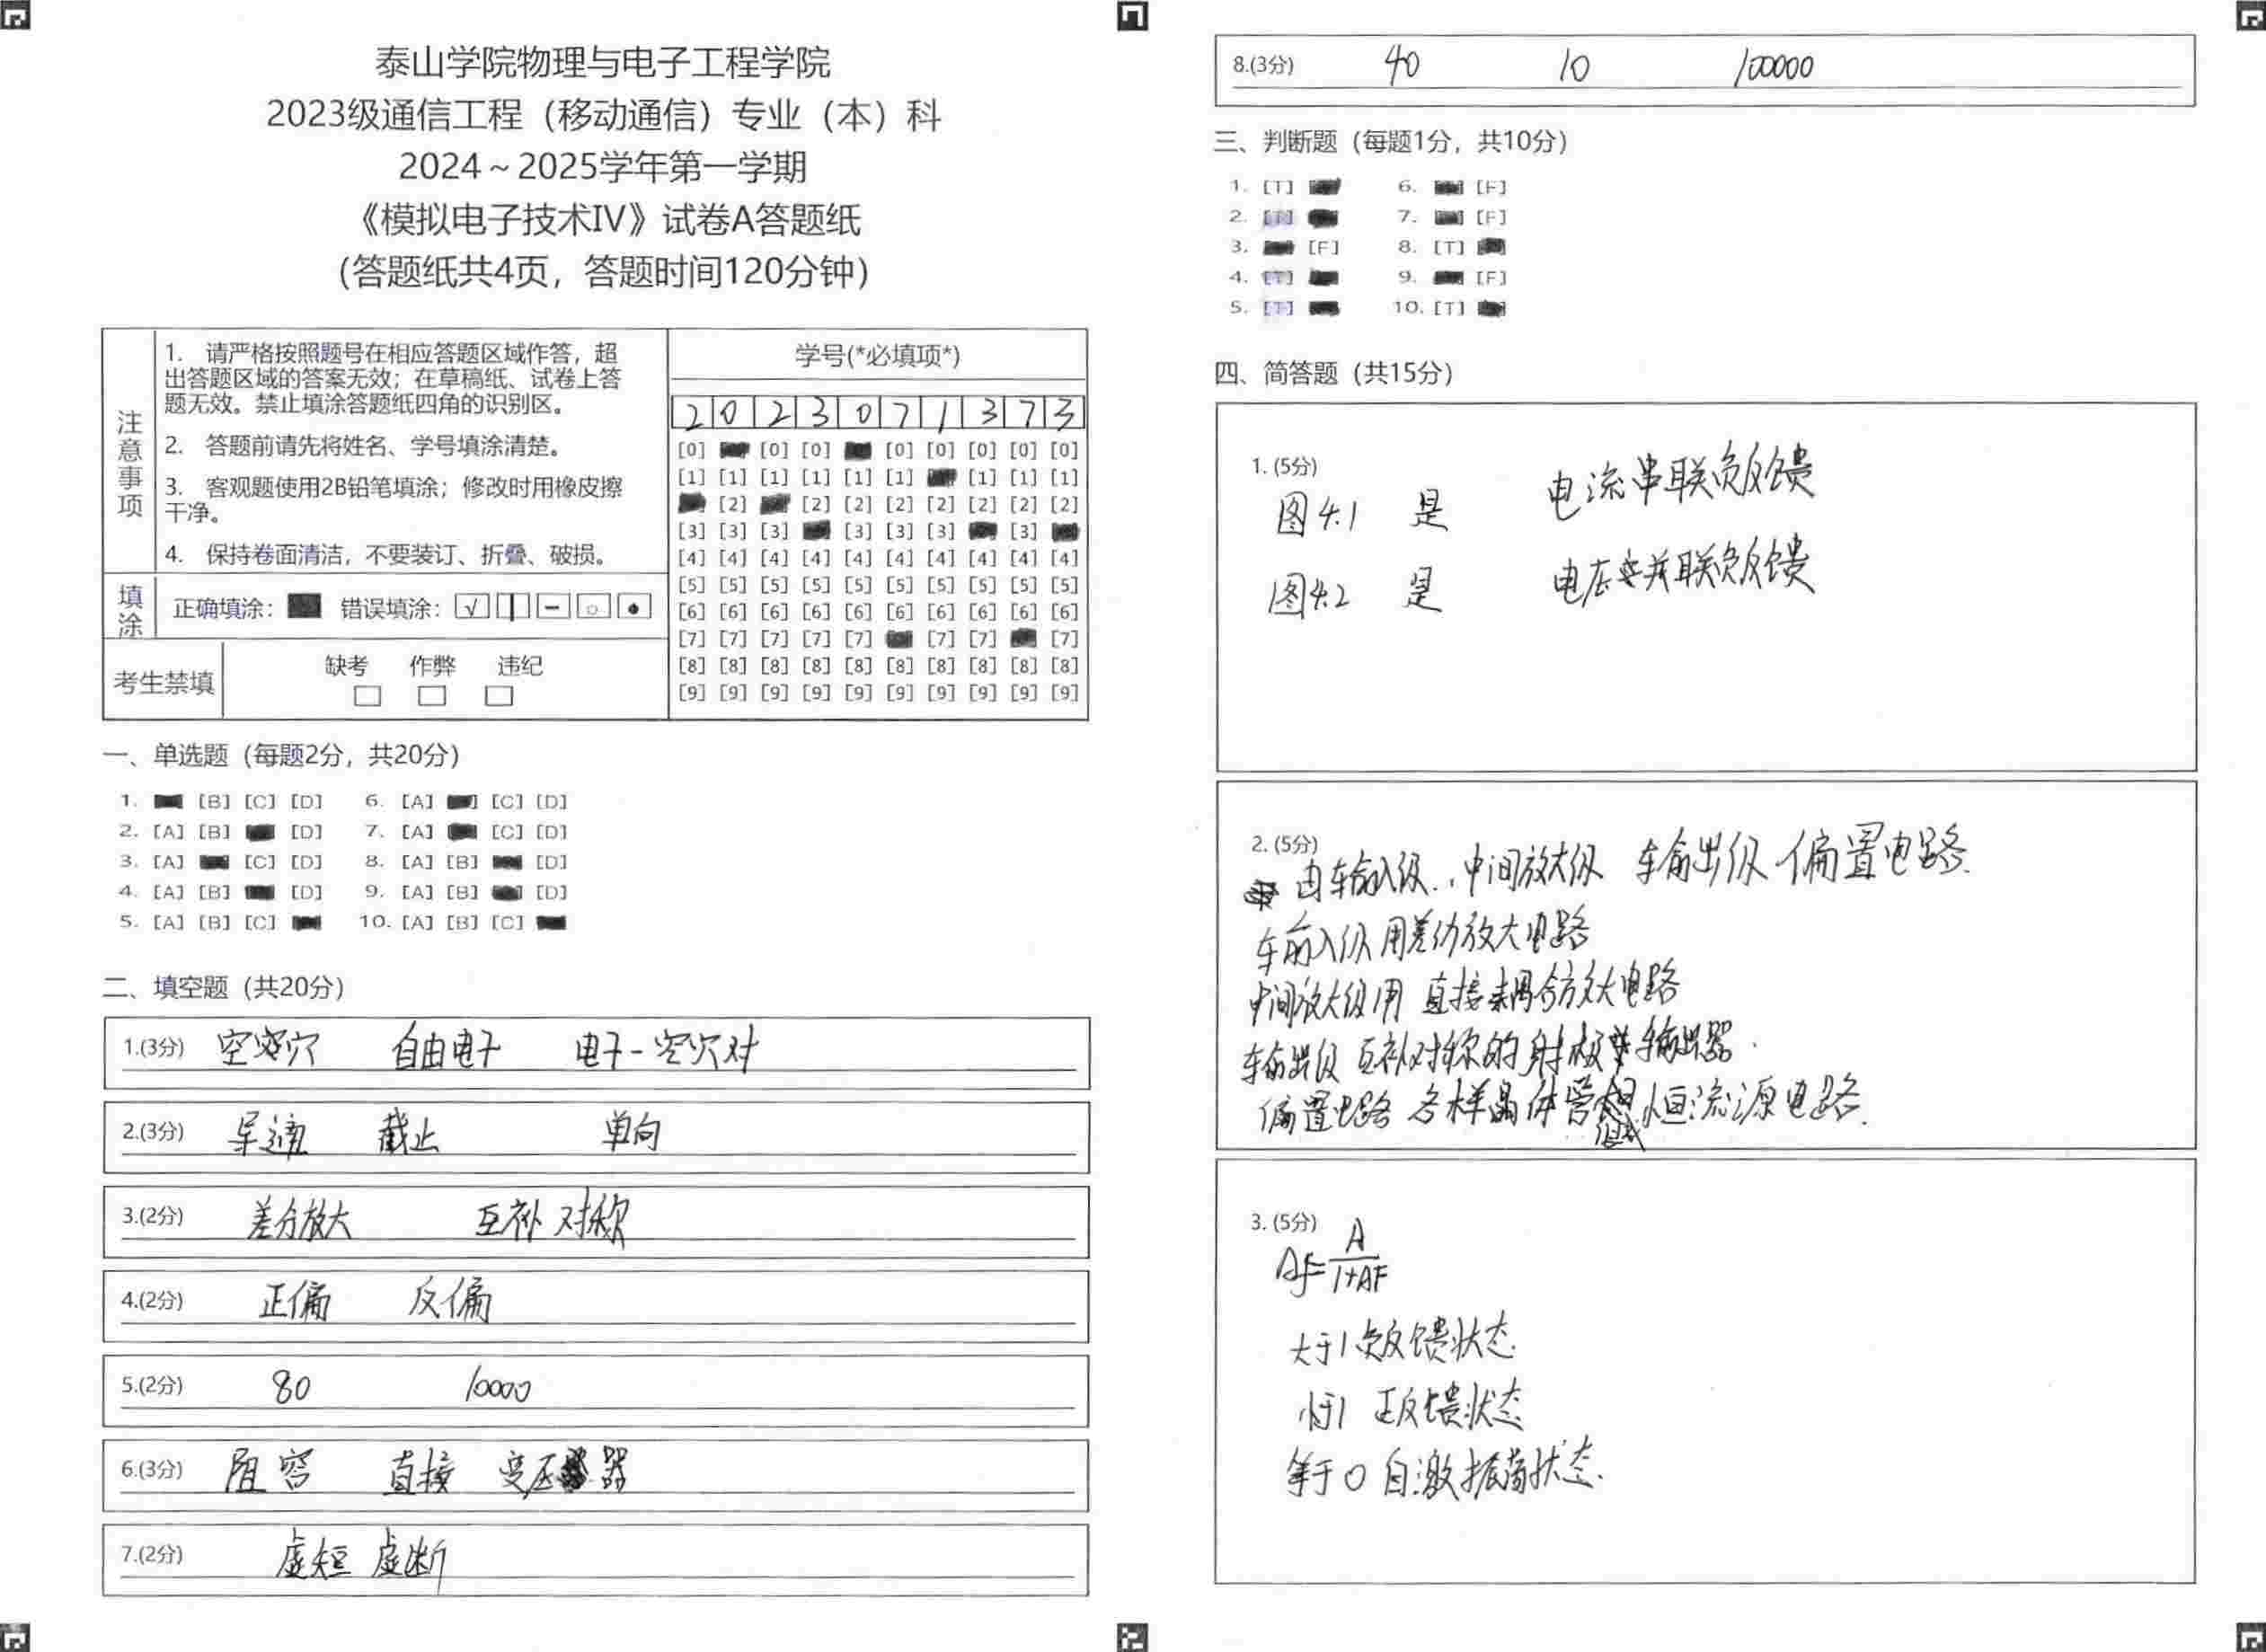 泰山学院物理与电子工程学院
2023级通信工程（移动通信）专业（本）科
2024～2025学年第一学期
《模拟电子技术IV》试卷A答题纸
（答题纸共4页，答题时间120分钟）
注意事项
1. 请严格按照题号在相应答题区域作答，超
出答题区域的答案无效；在草稿纸、试卷上答
题无效。禁止填涂答题纸四角的识别区。
2. 答题前请先将姓名、学号填涂清楚。
3. 客观题使用2B铅笔填涂；修改时用橡皮擦
干净。
4. 保持卷面清洁，不要装订、折叠、破损。
填涂 正确填涂： 错误填涂：
考生禁填 缺考 作弊 违纪
学号(*必填项*)
2 0 2 3 0 7 1 3 7 3
[0] [0] [0] [0] [0] [0] [0] [0]
[1] [1] [1] [1] [1] [1] [1] [1] [1]
[2] [2] [2] [2] [2] [2] [2] [2]
[3] [3] [3] [3] [3] [3] [3]
[4] [4] [4] [4] [4] [4] [4] [4] [4] [4]
[5] [5] [5] [5] [5] [5] [5] [5] [5] [5]
[6] [6] [6] [6] [6] [6] [6] [6] [6] [6]
[7] [7] [7] [7] [7] [7] [7] [7]
[8] [8] [8] [8] [8] [8] [8] [8] [8] [8]
[9] [9] [9] [9] [9] [9] [9] [9] [9] [9]
一、单选题（每题2分，共20分）
1. [B] [C] [D] 6. [A] [C] [D]
2. [A] [B] [D] 7. [A] [C] [D]
3. [A] [C] [D] 8. [A] [B] [D]
4. [A] [B] [D] 9. [A] [B] [D]
5. [A] [B] [C] 10. [A] [B] [C]
二、填空题（共20分）
1.(3分) 空穴 自由电子 电子-空穴对
2.(3分) 导通 截止 单向
3.(2分) 差分放大 互补对称
4.(2分) 正偏 反偏
5.(2分) 80 10000
6.(3分) 阻容 直接 变压器
7.(2分) 虚短 虚断
8.(3分) 40 10 100000
三、判断题（每题1分，共10分）
1. [T] 6. [F]
2. [T] 7. [F]
3. [F] 8. [T]
4. [T] 9. [F]
5. [T] 10. [T]
四、简答题（共15分）
1. (5分)
图4.1 是 电流串联负反馈
图4.2 是 电压并联负反馈
2. (5分)
由输入级、中间放大级 输出级 偏置电路.
输入级用差动放大电路
中间放大级用 直接耦合放大电路
输出级 互补对称的射极输出器.
偏置电路 多样晶体管恒流源电路.
3. (5分)
Af=A/(1+AF)
大于1 负反馈状态.
小于1 正反馈状态
等于0 自激振荡状态.